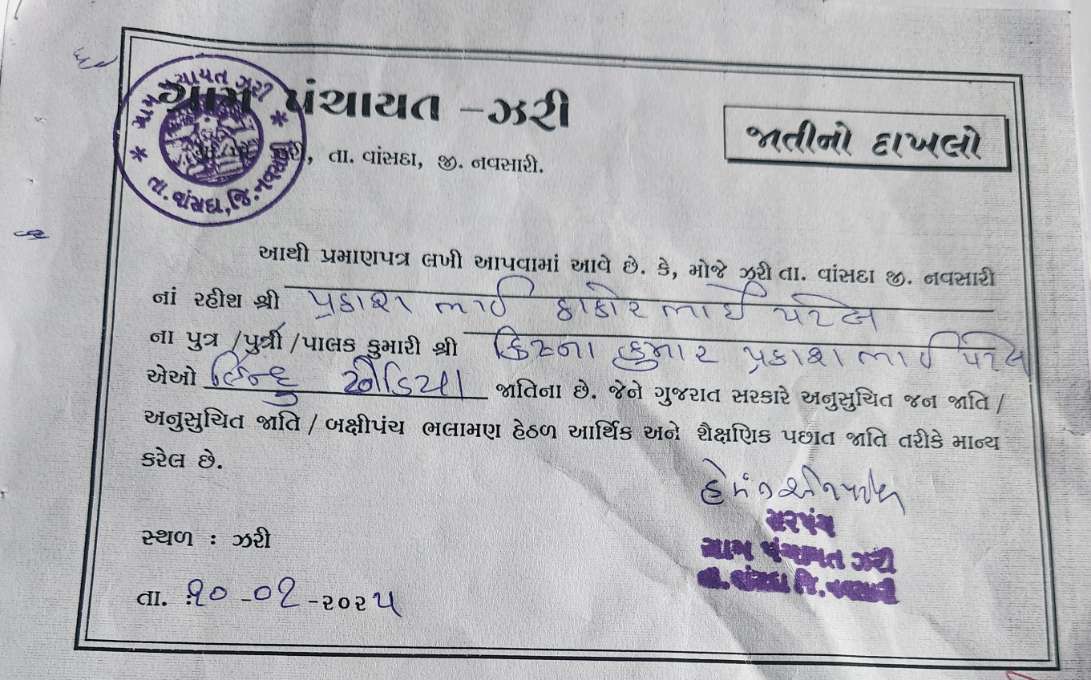 ગ્રામ પંચાયત - ઝરી
જાતીનો દાખલો
ગ્રામ પંચાયત ઝરી
તા. વાંસદા, જિ. નવસારી
ઝરી, તા. વાંસદા, જી. નવસારી.
આથી પ્રમાણપત્ર લખી આપવામાં આવે છે. કે, મોજે ઝરી તા. વાંસદા જી. નવસારી
નાં રહીશ શ્રી પ્રકાશભાઈ ઠાકોરભાઈ પટેલ
ના પુત્ર /પુત્રી /પાલક કુમારી શ્રી ક્રિષ્ના કુમાર પ્રકાશભાઈ પટેલ
એઓ હિન્દુ ધોડિયા જાતિના છે. જેને ગુજરાત સરકારે અનુસુચિત જન જાતિ /
અનુસુચિત જાતિ / બક્ષીપંચ ભલામણ હેઠળ આર્થિક અને શૈક્ષણિક પછાત જાતિ તરીકે માન્ય
કરેલ છે.
સરપંચ
ગ્રામ પંચાયત ઝરી
તા. વાંસદા જિ. નવસારી
સ્થળ : ઝરી
તા. :૨૦-૦૧-૨૦૨૫